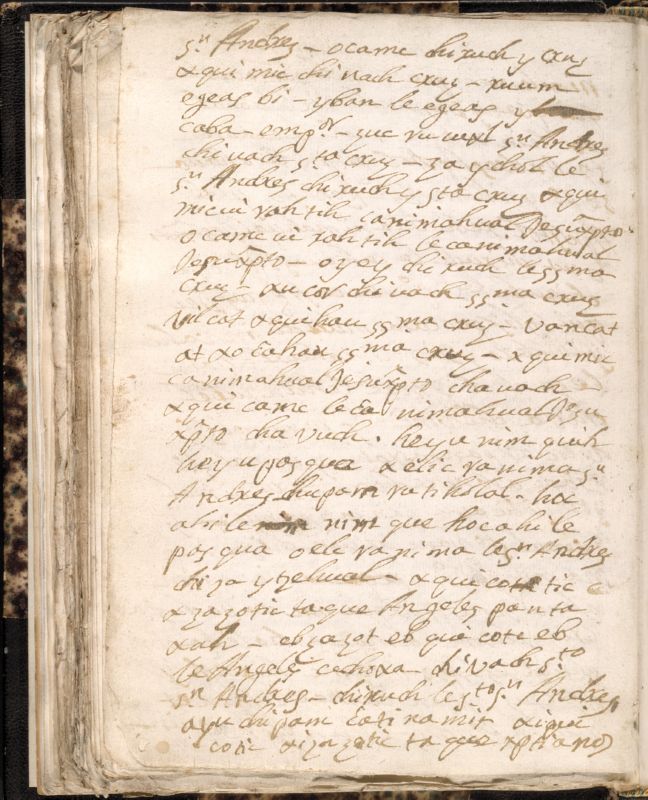 sⁿ Andres – ocame chiruch y cruz
xqui mic chi vach cruz – ruum
egeas bi – y ban le egeas
caba – empᵒʳ – sⁿ Andres
chi vach sta cruz – za ychol le
sⁿ Andres chiruch y sta cruz xqui
canimahual Jesuxpto
ocame ui rahtih le canimahual
Jesuxpto – oyey chi ruch le ssma
cruz – chi vach ssma cruz
vilcat xquihau ssma cruz – vancat
at xo cahau ssma cruz – xqui mic
canimahual Jesuxpto chavach
xqui came le ca nimahual Jesu
xpto cha vuch . heyu nim quih
heyu pasqua xelic ranima sⁿ
Andres chupam ru tiholal – hoc
ahile nim que hocahi le
pasqua oeli ranima le sⁿ Andres
chi za ytzelual – xqui cotic
xzazotic taque Angeles pan ta
xah – ebzazot eb qui coti eb
le Angeles cochoxa – chi vach sto
sⁿ Andres – chiruch le sto sⁿ Andres
chipam catinamit
cotic xizazotic taque xptianos